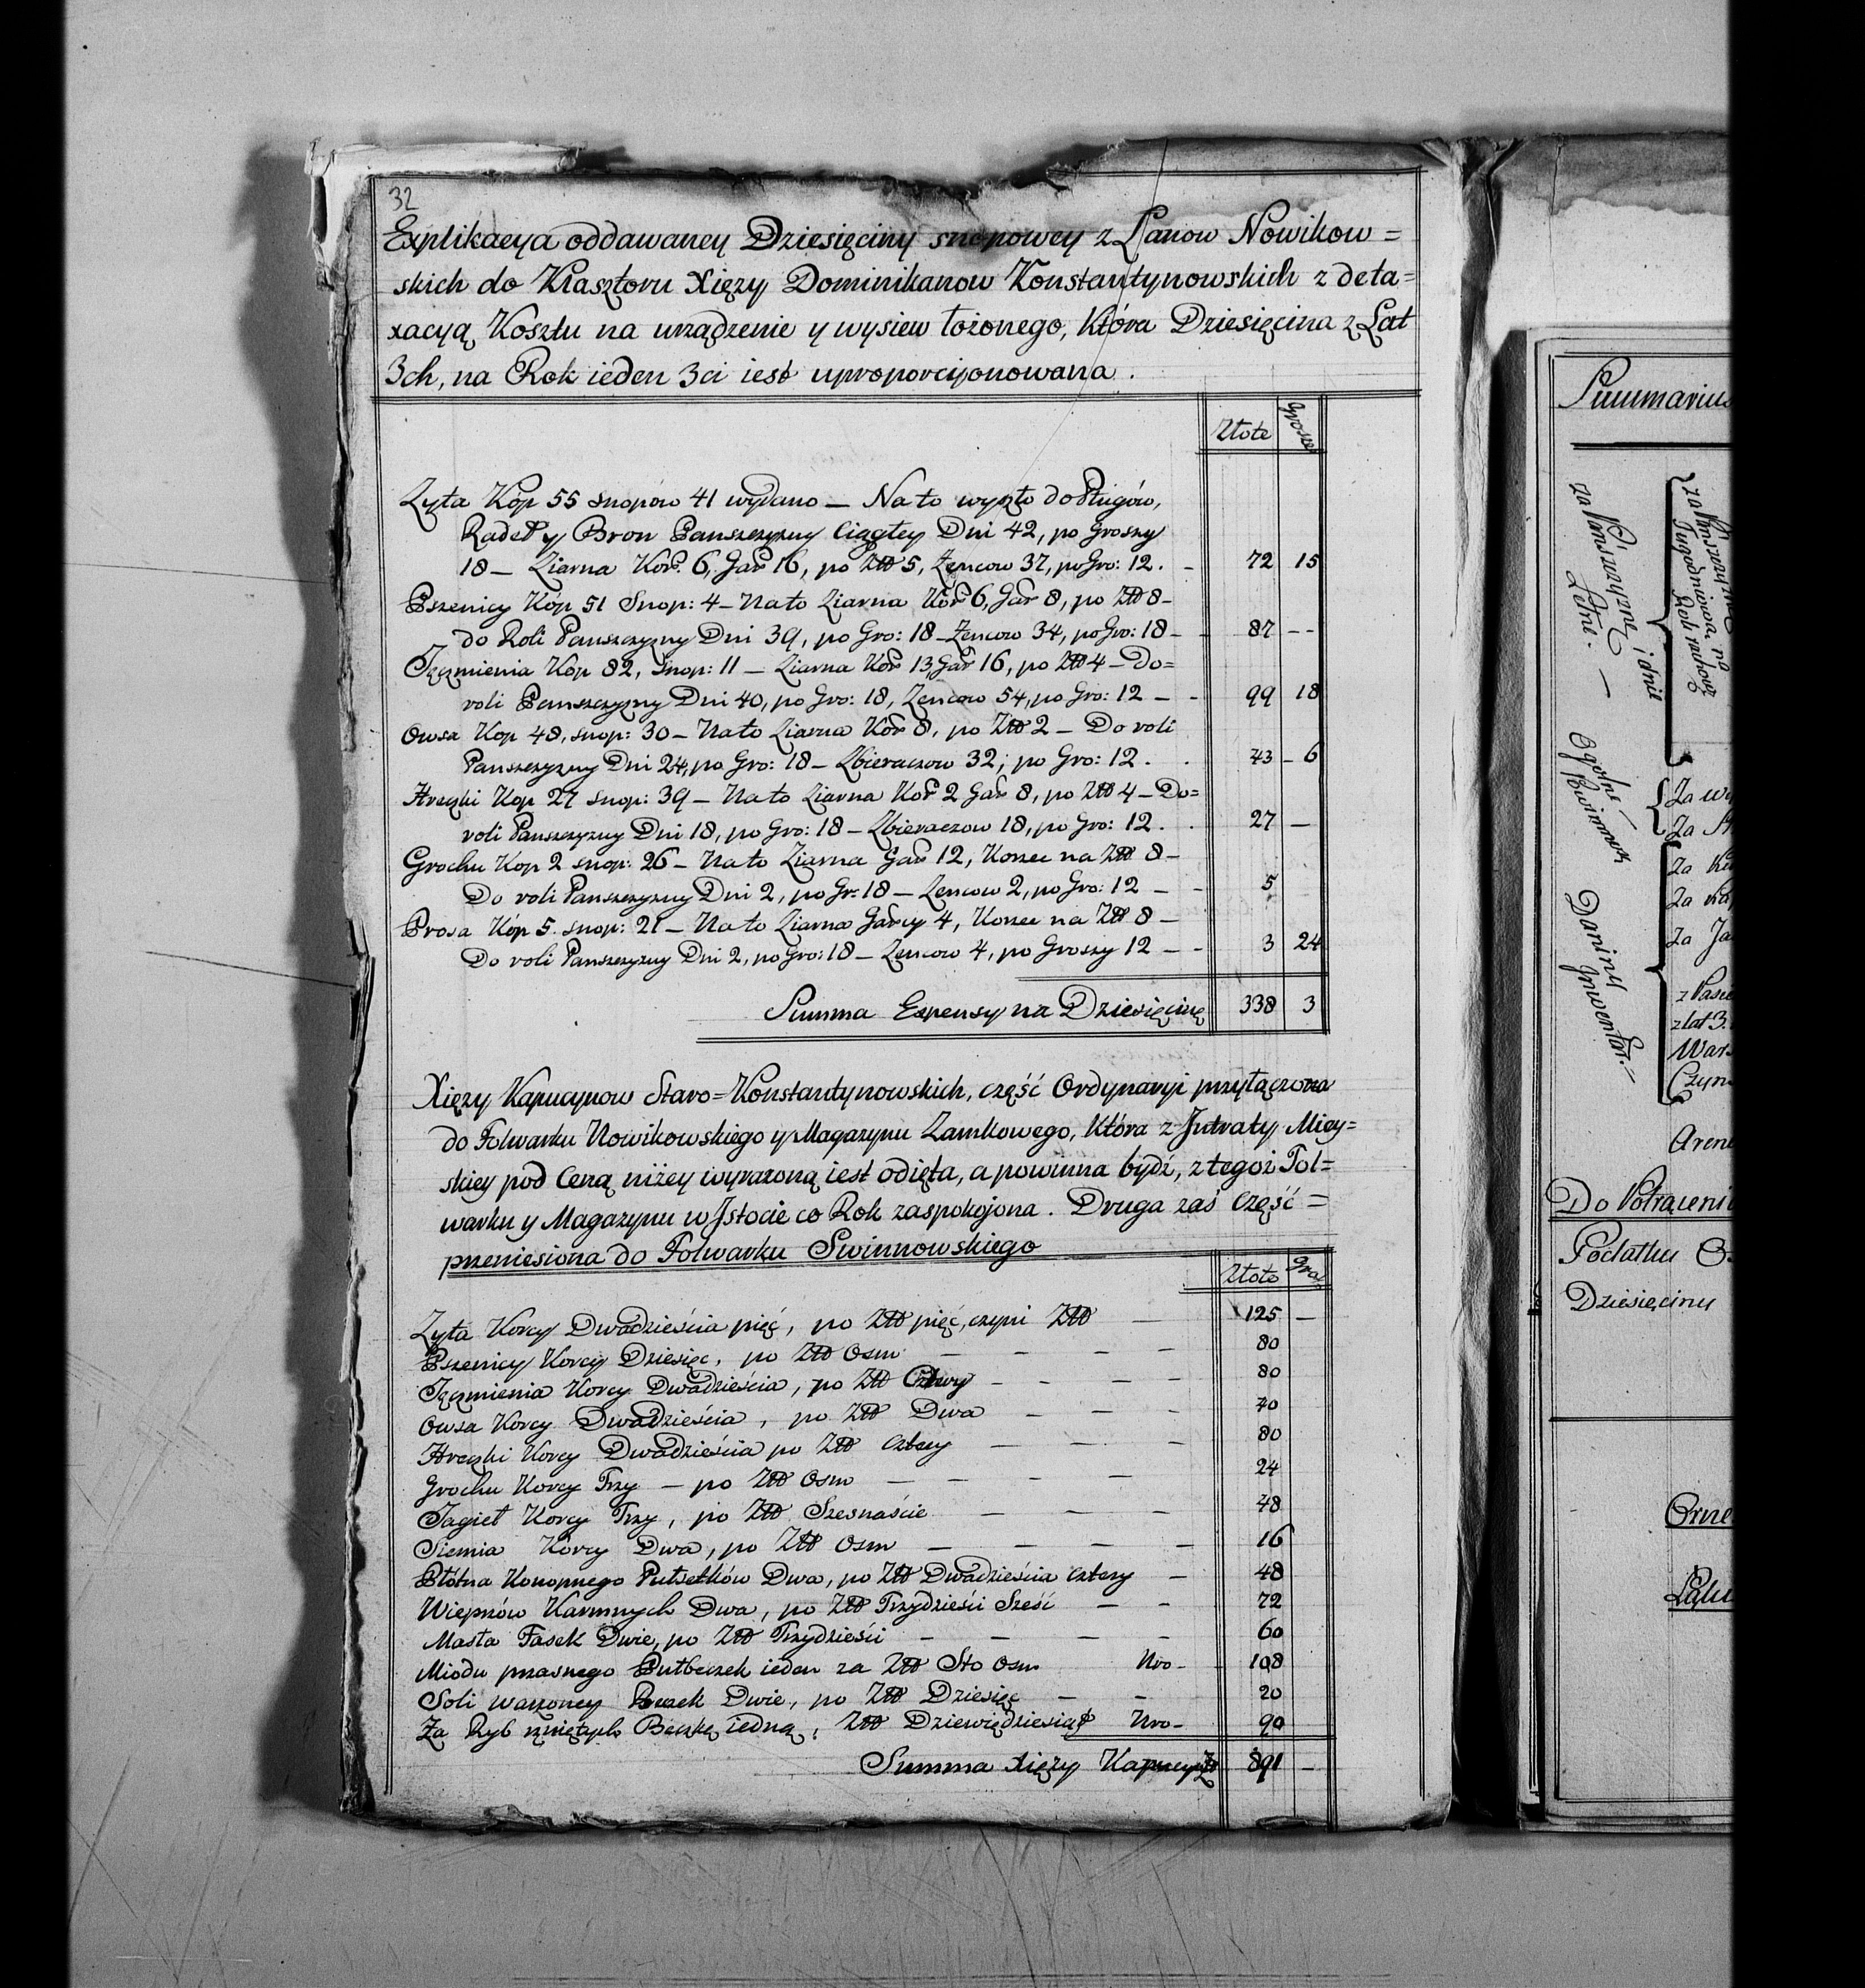 32
Explikacya oddawaney Dziesięciny snopowey z Łanow Nowikow=
skich do Klasztoru Xięży Dominikanow Konstantynowskich z deta=
xacyą Kosztu na urządzenie y wysiew łożonego, Która Dziesięcina z Lat
3ch, na Rok ieden 3ci iest uproporcyonowana.
Złote Grosze
Zyta Kóp 55 snopów 41 wydano — Na to wyszło do Pługów,
Radeł y Bron Panszczyzny Ciągłey Dni 42, po Groszy
18 — Ziarna Kor. 6, Gar 16, po Złł 5, Zencow 37, po Gro: 12. - 72 15
Pszenicy Kóp 51 Snop: 4 — Na to Ziarna Kor 6, Gar 8, po Złł 8 —
do Roli Panszczyzny Dni 39, po Gro: 18 — Zencow 34, po Gro: 18 — 87 --
Jęczmienia Kop 82, snop: 11 — Ziarna Kor 13, Gar 16, po Złł 4 — Do=
roli Panszczyzny Dni 40, po Gro: 18, Zencow 54, po Gro: 12 — - 99 18
Owsa Kop 48, snop: 30 — Na to Ziarna Kor 8, po Złł 2 — Do roli
Panszczyzny Dni 24, po Gro: 18 — Zbieraczow 32; po Gro: 12. . 43 – 6
Hreczki Kop 27 snop: 39 — Na to Ziarna Kor 2 Gar 8, po Złł 4 — Do=
roli Panszczyzny Dni 18, po Gro: 18 — Zbieraczow 18, po Gro: 12. . 27 —
Grochu Kop 2 snop: 26 — Na to Ziarna Gar 12, Korzec na Złł 8 —
Do roli Panszczyzny Dni 2, po Gr: 18 — Zencow 2, po Gro: 12 — - 5
Prosa Kóp 5. snop: 21 — Na to Ziarna Garcy 4, Korzec na Złł 8 —
Do roli Panszczyzny Dni 2, po Gro: 18 — Zencow 4, po Groszy 12 — - 3 24
Summa Expensy na Dziesięcinę 338 3
Xięży Kapucynow Staro=Konstantynowskich, część Ordynaryi przyłączona
do Folwarku Nowikowskiego y Magazynu Zamkowego, Która z Intraty Miey=
skiey pod Ceną niżey wyrażoną iest odięta, a powinna bydź, z tegoż Fol=
warku y Magazynu w Istocie co Rok zaspokojona. Druga zaś Część =
przeniesiona do Folwarku Swinnowskiego
Złote Gro
Zyta Korcy Dwadzieścia pięć, po Złł pięć, czyni Złł — 125 —
Pszenicy Korcy Dziesięć, po Złł Osm — — — — 80
Jęczmienia Korcy Dwadzieścia, po Złł Cztery — — — — 80
Owsa Korcy Dwadzieścia, po Złł Dwa — — — 40
Hreczki Korcy Dwadzieścia po Złł cztery — — — 80
Grochu Korcy Trzy — po Złł Osm — — — — 24
Jagieł Korcy Trzy, po Złł Szesnaście — — — 48
Siemia Korcy Dwa, po Złł Osm — — — — 16
Płótna Konopnego Pułsetków Dwa, po Złł Dwadzieścia cztery — 48
Wieprzów Karmnych Dwa, po Złł Trzydzieści Sześć — — 72
Masła Fasek Dwie, po Złł Trzydzieści — — — — 60
Miodu przasnego Pułbeczek ieden za Złł Sto Osm Nro- 108
Soli warzoney Beczek Dwie, po Złł Dziesięć — — 20
Za Ryb rzniętych Beczkę iedną, Złł Dziewiędziesiąt Nro- 90
Summa Xięży Kapucynow 891 —
Summarius
Za wy
Ogolne Powinnosc
Daniny Inwentar:
z lat 3.
Do Potrąceni
Podatku
Dziesięciny